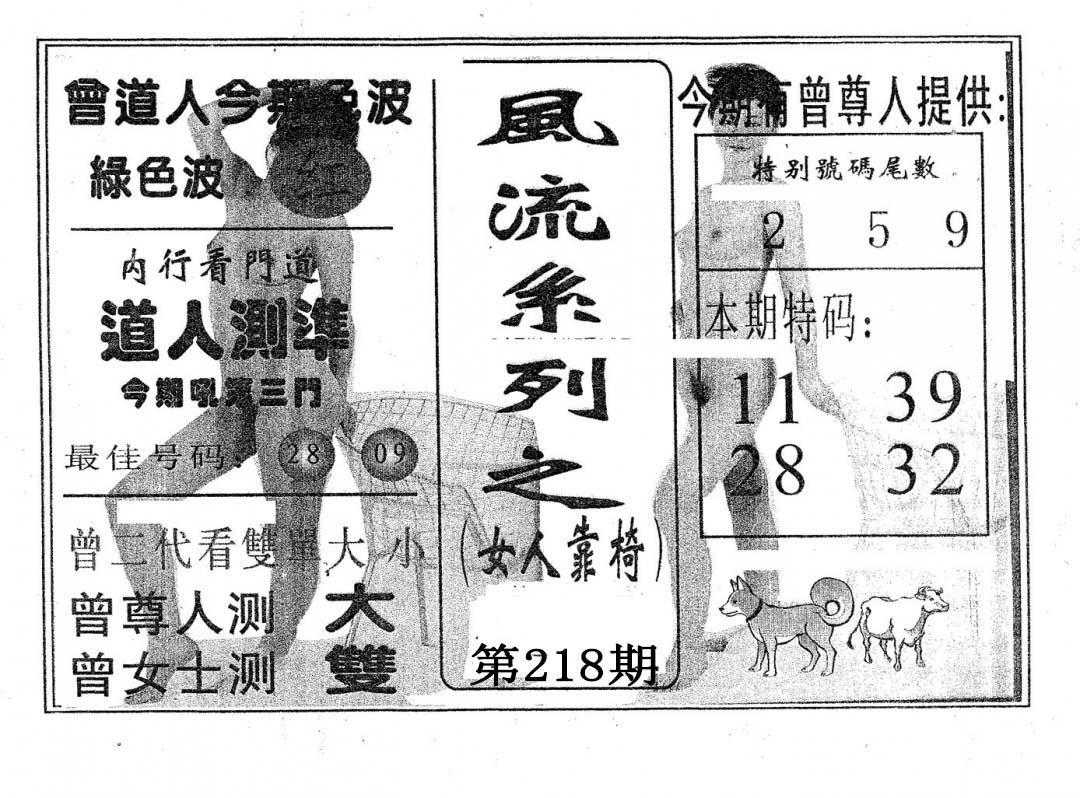 曾道人今期色波
綠色波 红
内行看門道
道人測準
今期吼準三門
最佳号码: 28 09
曾二代看雙單大小
曾尊人测 大
曾女士测 雙
風流系列之
(女人靠椅)
第218期
今期有曾尊人提供:
特别號碼尾數
2 5 9
本期特码:
11 39
28 32